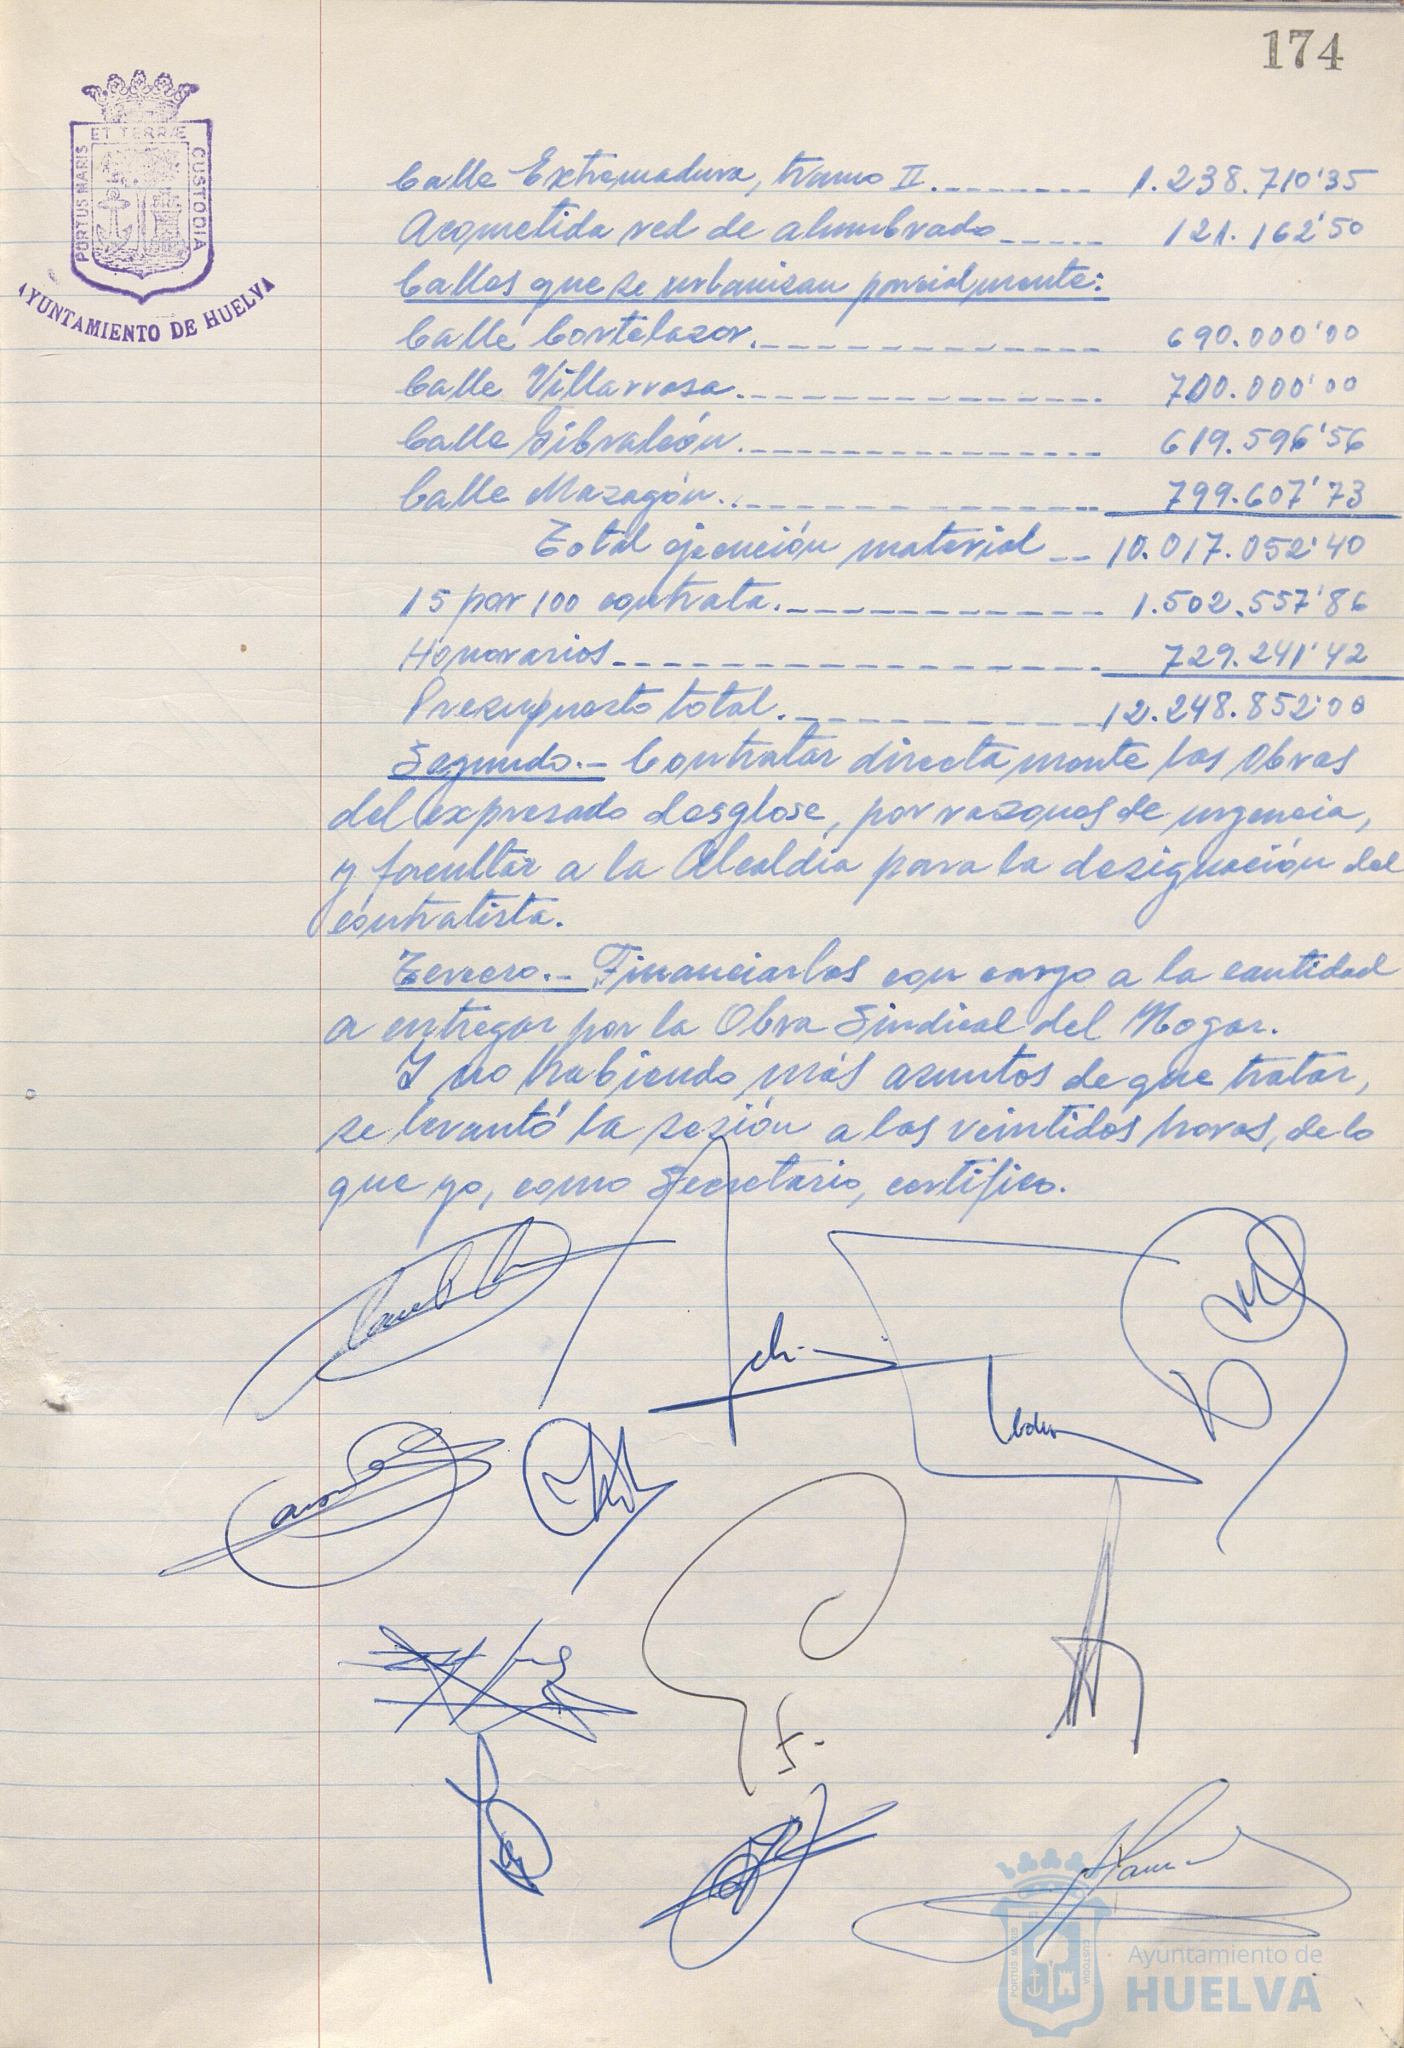 174
ET TERRÆ
PORTUS MARIS
CUSTODIA
AYUNTAMIENTO DE HUELVA
Calle Extremadura, tramo II.-------- 1.238.710'35
Acometida red de alumbrado----- 121.162'50
Calles que se urbanizan parcialmente:
Calle Cortelazor.------------- 690.000'00
Calle Villarrosa.------------- 700.000'00
Calle Gibraleón.------------- 619.596'56
Calle Mazagón.------------- 799.607'73
Total ejecución material -- 10.017.052'40
15 por 100 contrata.----------- 1.502.557'86
Honorarios.----------------- 729.241'42
Presupuesto total.----------- 12.248.852'00
Segundo.- Contratar directamente las obras
del expresado desglose, por razones de urgencia,
y facultar a la Alcaldía para la designación del
contratista.
Tercero.- Financiarlas con cargo a la cantidad
a entregar por la Obra Sindical del Hogar.
Y no habiendo más asuntos de que tratar,
se levantó la sesión a las veintidós horas, de lo
que yo, como Secretario, certifico.
ET TERRÆ
PORTUS MARIS
CUSTODIA
Ayuntamiento de
HUELVA